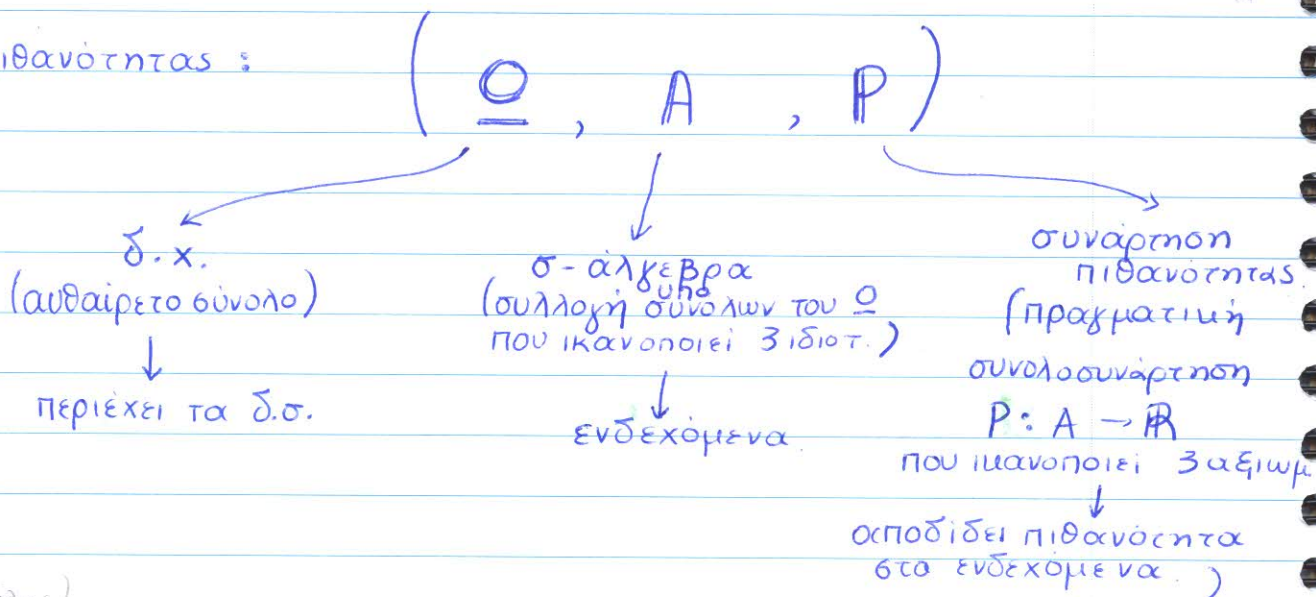 ιθανότητας :
( Ο , Α , P )
δ.χ.
(αυθαίρετο σύνολο)
περιέχει τα δ.σ.
σ-άλγεβρα
(συλλογή υποσυνόλων του Ο
που ικανοποιεί 3 ιδιοτ.)
ενδεχόμενα.
συνάρτηση
πιθανότητας.
(πραγματική
συνολοσυνάρτηση
P: A → ℝ
που ικανοποιεί 3 αξιωμ
αποδίδει πιθανότητα
στα ενδεχόμενα. )